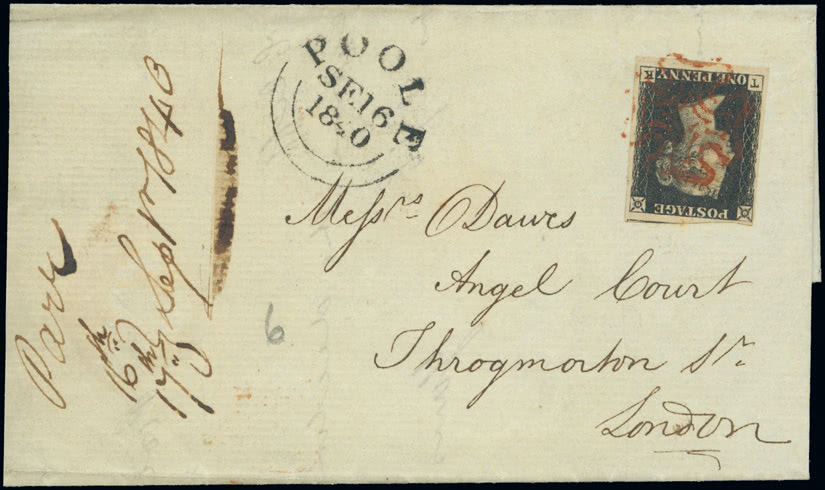 POOLE
SE 16
1840
ONE PENNY
T K
POSTAGE
Messrs Dawes
Angel Court
Throgmorton St.
London
6
Parr
16th
17th Sept 1840